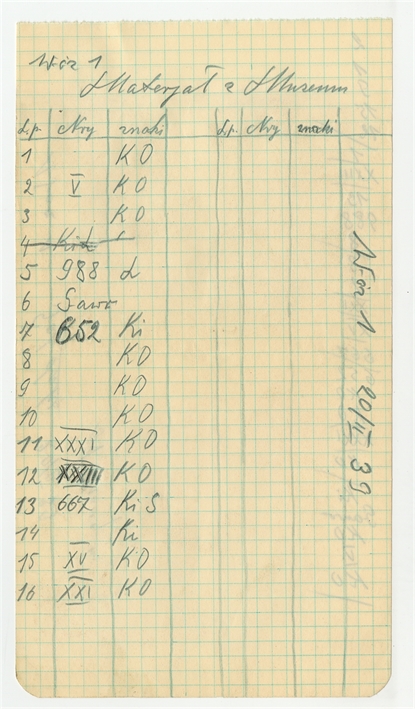 Wóz 1
Materjał z Muzeum
L.p. Nry znaki L.p. Nry znaki
1 KO
2 V KO
3 KO
4
5 988 L
6 Sawr
7 B52 Ki
8 KO
9 KO
10 KO
11 XXXI KO
12 XXIII KO
13 667 Ki S
14 Ki
15 XV KO
16 XXI KO
Wóz 1 20/II 39